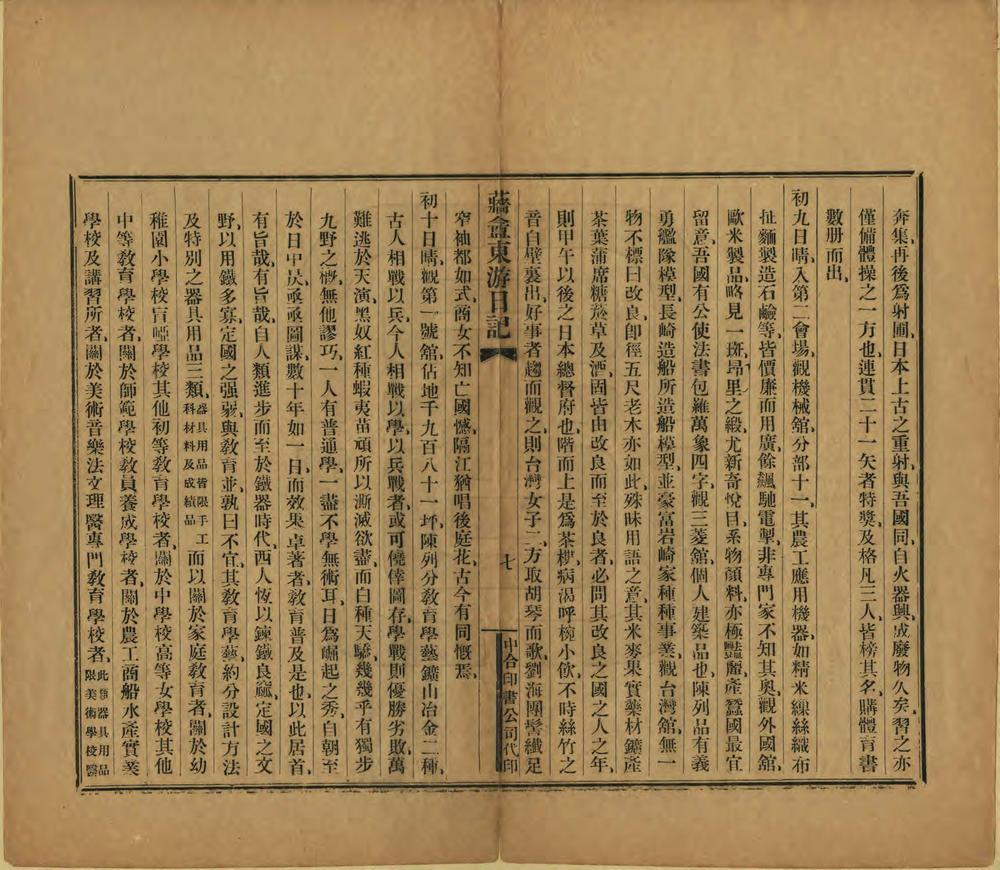 奔集、再後爲射圃、日本上古之重射、與吾國同、自火器興、成廢物久矣、習之亦
僅備體操之一方也、連貫二十一矢者特獎、及格凡三人、皆榜其名、購體育書
數册而出、
初九日晴、入第二會場、觀機械舘、分部十一、其農工應用機器、如精米繰絲織布
扯麵製造石鹼等、皆價廉而用廣、餘飆馳電掣、非專門家不知其奧、觀外國舘、
歐米製品、略見一斑、昻里之緞、尤新奇悅目、系物顏料、亦極豔麗、產蠶國最宜
留意、吾國有公使法書包羅萬象四字、觀三菱舘、個人建築品也、陳列品有義
勇艦隊模型、長崎造船所造船模型、並豪富岩崎家種種事業、觀台灣舘、無一
物不標曰改良、卽徑五尺老木亦如此、殊昧用語之意、其米麥果實藥材鑛產
茶葉蒲席糖菸草及酒、固皆由改良而至於良者、必問其改良之國之人之年、
則甲午以後之日本總督府也、階而上、是爲茶椤、病渴呼椀小飲、不時絲竹之
音自壁裏出、好事者趨而觀之、則台灣女子二、方取胡琴而歌、劉海團髻纖足
蘠盦東游日記
七
中合印書公司代印
窄袖都如式、商女不知亡國憾、隔江猶唱後庭花、古今有同慨焉、
初十日晴、觀第一號舘、佔地千九百八十一坪、陳列分敎育學藝鑛山冶金二種、
古人相戰以兵、今人相戰以學、以兵戰者、或可僥倖圖存、學戰則優勝劣敗、萬
難逃於天演、黑奴紅種蝦夷苗頑所以漸滅欲盡、而白種天驕幾幾乎有獨步
九野之慨、無他謬巧、一人有普通學、一盡不學無術耳、日爲崛起之秀、自朝至
於日中昃亟亟圖謀數十年如一日、而效果卓著者、敎育普及是也、以此居首、
有旨哉、有旨哉、自人類進步而至於鐵器時代、西人恆以鍊鐵良窳、定國之文
野、以用鐵多寡、定國之强弱、與敎育並、孰曰不宜、其敎育學藝、約分設計方法
及特別之器具用品三類、器具用品皆限手工科材料及成績品而以關於家庭敎育者、關於幼
稚園小學校盲啞學校其他初等敎育學校者、關於中學校高等女學校其他
中等敎育學校者、關於師範學校敎員養成學校者、關於農工商船水產實業
學校及講習所者、關於美術音樂法文理醫專門敎育學校者、此類器具用品限美術學校醫